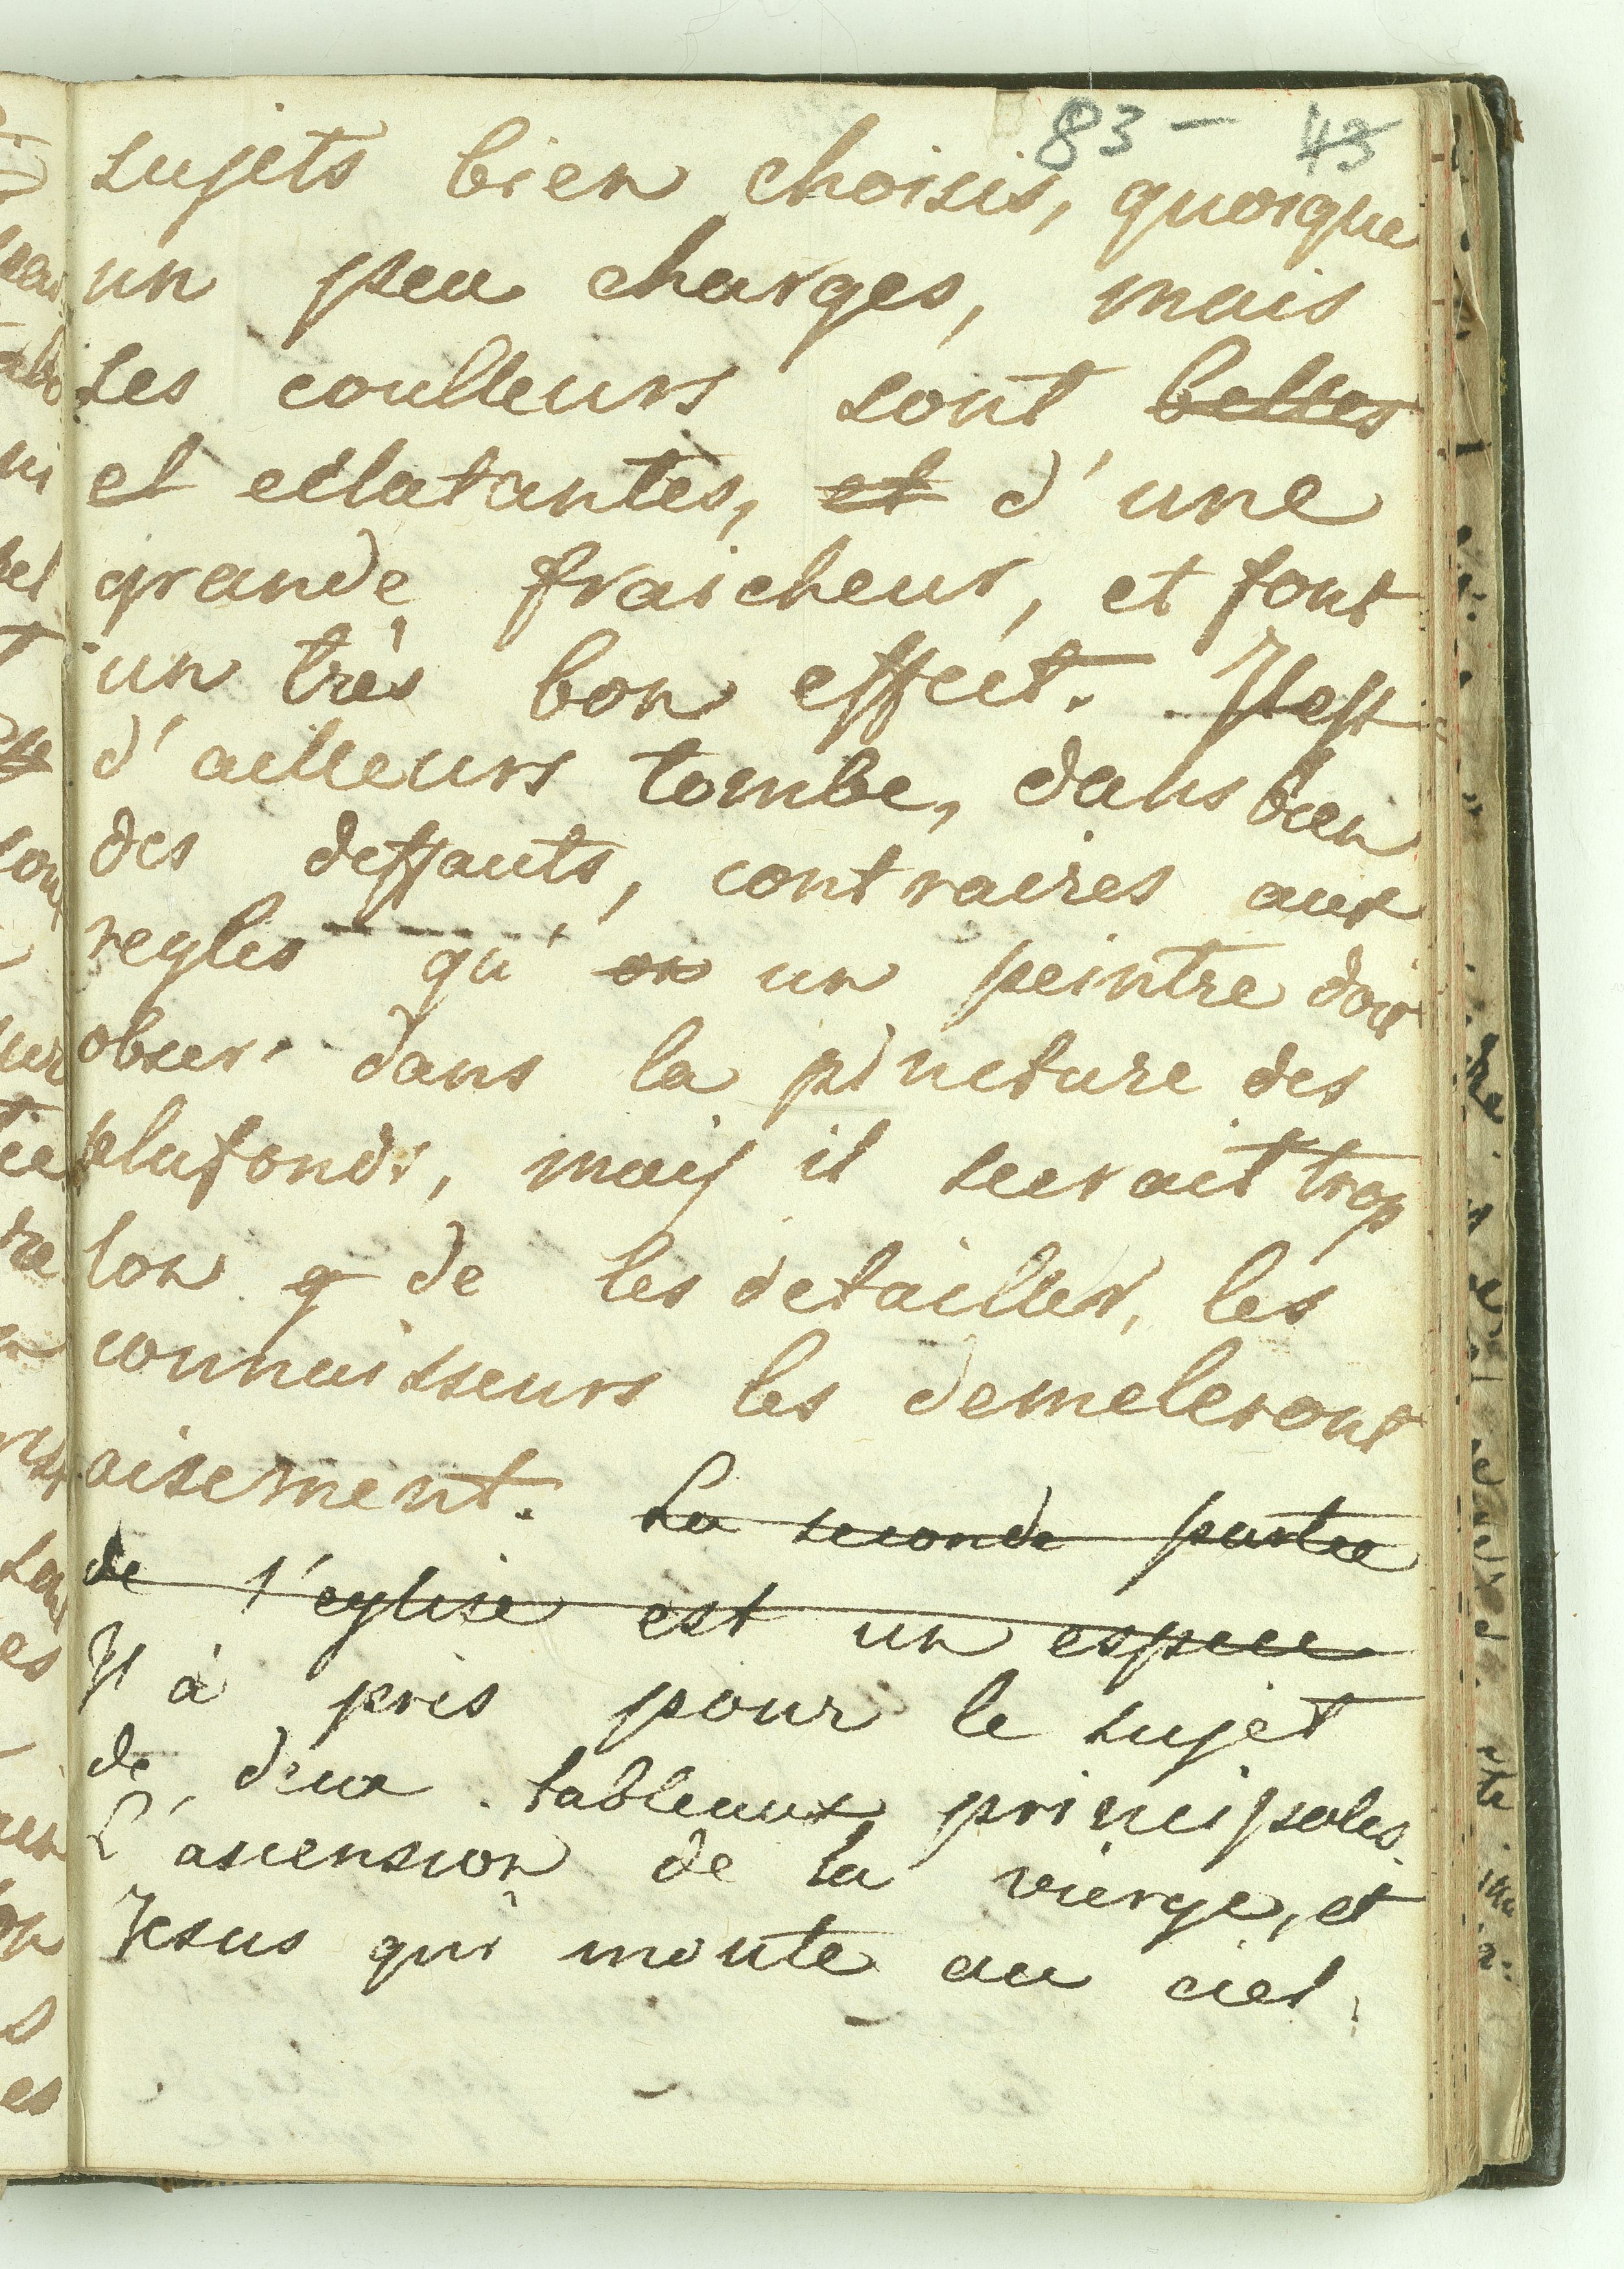 83 - 43
sujets bien choisis, quoique
un peu charges, mais
ses coulleurs sont belles
et eclatantes, et d'une
grande fraicheur, et font
un très bon effect. Il est
d'ailleurs tombe, dans bien
des deffauts, contraires aux
regles qu' on un peintre doit
obser dans la pincture des
plafonds, mais il seerait trop
lon g de les detailler, les
connaisseurs les demeleront
aisement. La seconde partie
de l'eglise est un espece
Il à pris pour le sujet
de deux tableaux principales.
L'ascension de la vierge, et
Jesus qui monte au ciel.